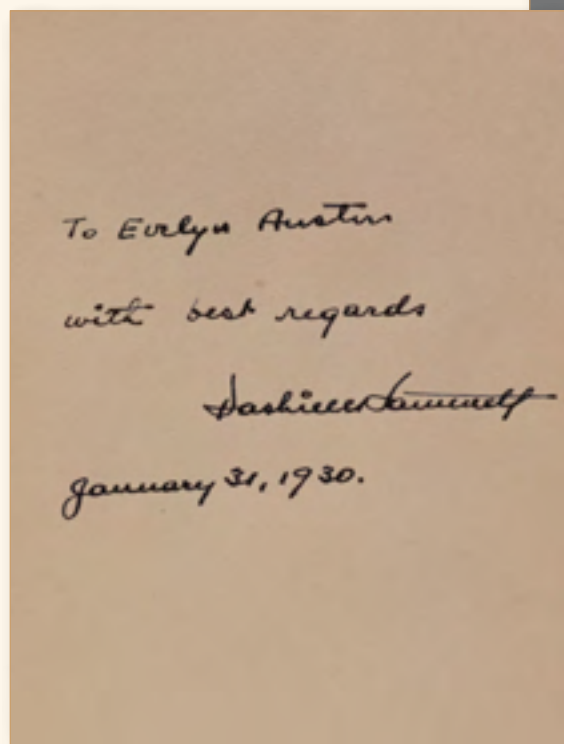 To Evelyn Austin
with best regards
Dashiell Hammett
January 31, 1930.